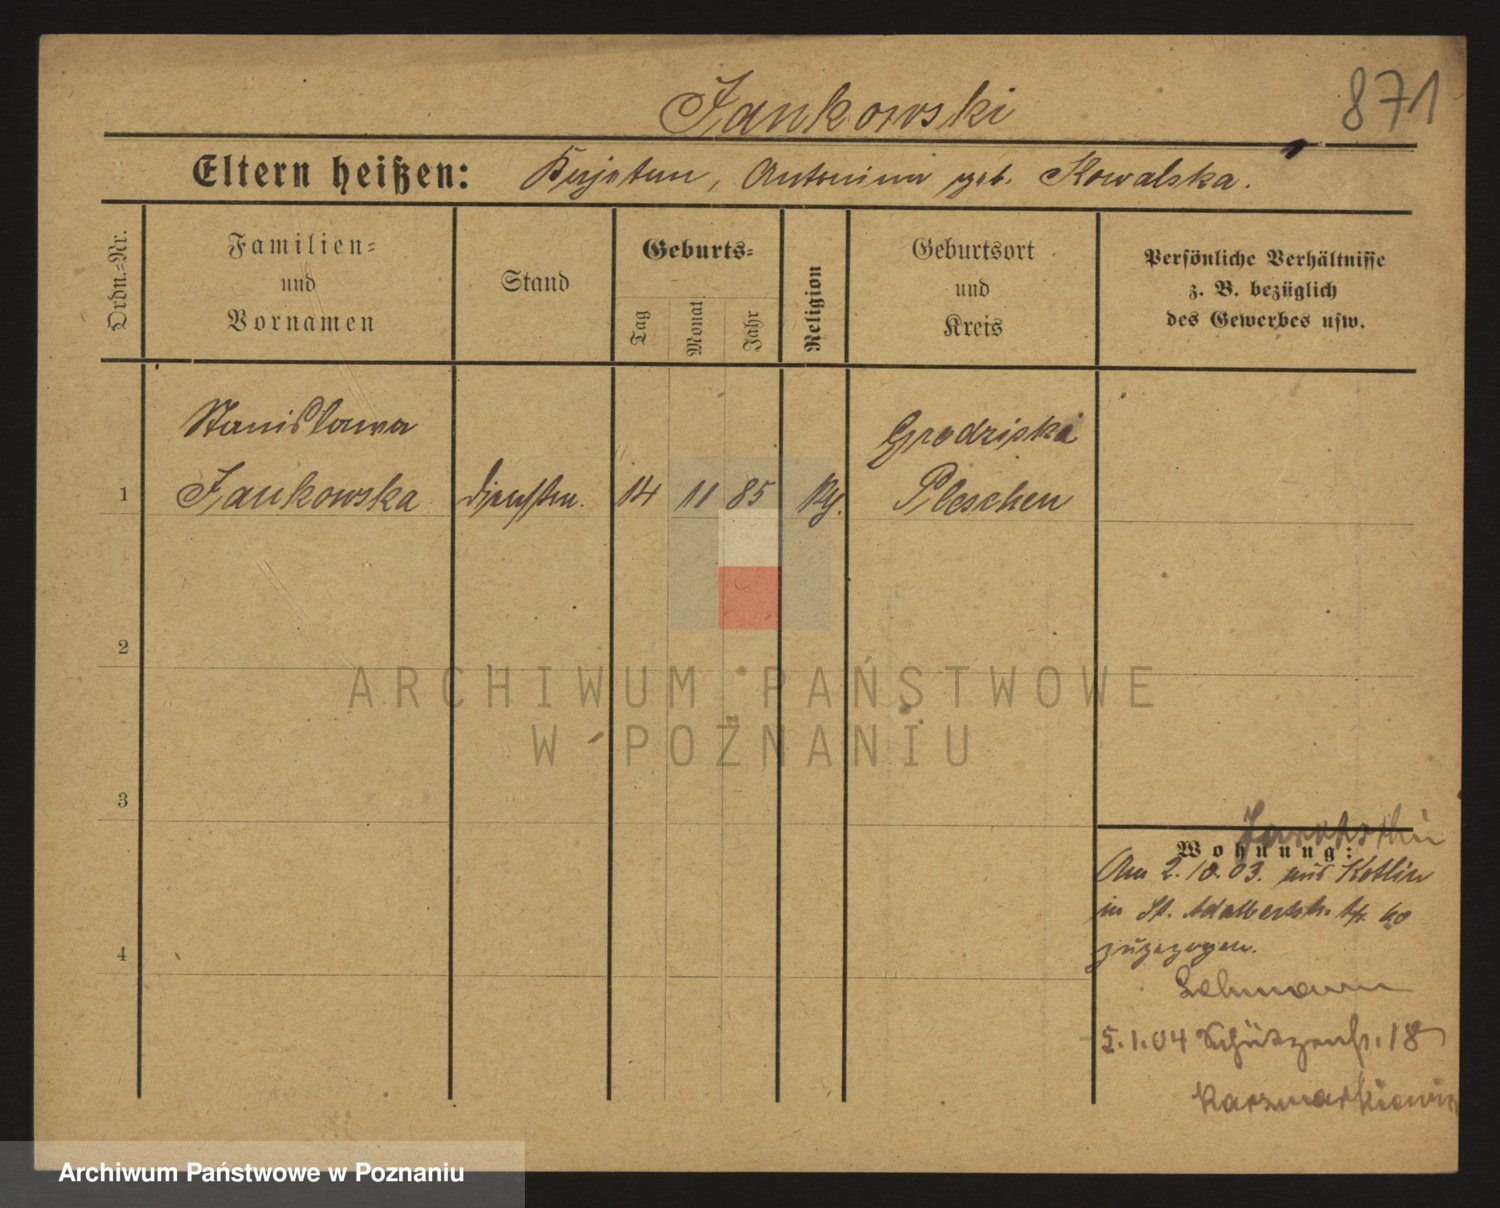 871
Jankowski
Eltern heißen: Kajetan, Antonina geb. Kowalska.
Ordn.=Nr.
Familien=
und
Vornamen
Stand
Geburts=
Tag
Monat
Jahr
Religion
Geburtsort
und
Kreis
Persönliche Verhältnisse
z. B. bezüglich
des Gewerbes usw.
Stanislawa
Grodzisko
1 Jankowska 14 11 85 Pleschen
2
3
4
Wohnung:
Am 2.10.03. aus Kotlin
in St. Adalbertstr. 
zugezogen.
Lehmann
5.1.04 Schützenstr. 18
Karzmarkiewicz
ARCHIWUM PAŃSTWOWE
W POZNANIU
Archiwum Państwowe w Poznaniu